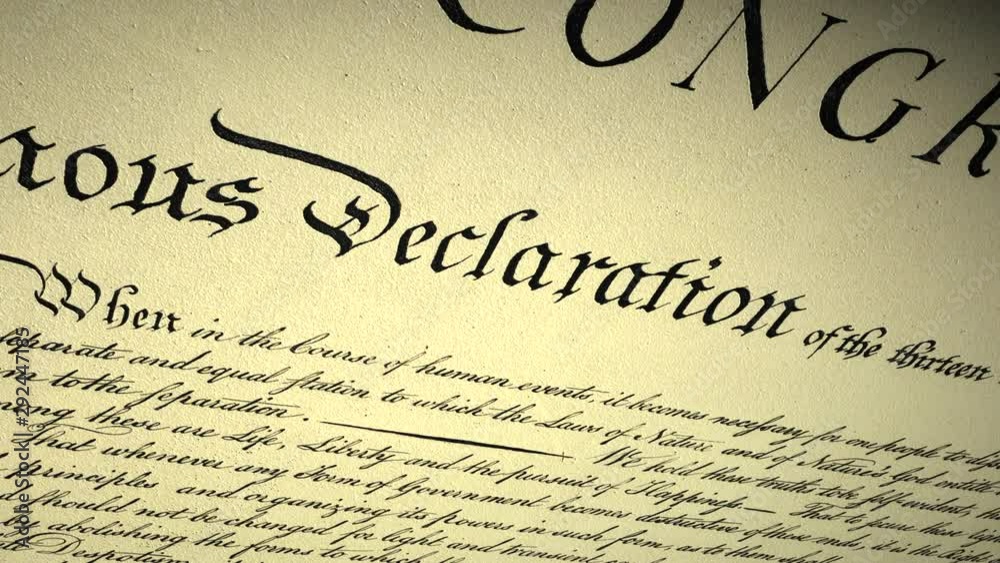 CONGR
mous Declaration of the thirteen
When in the Course of human events, it becomes necessary for one people to
separate and equal station to which the Laws of Nature and of Nature's God entitle
to the separation. We hold these truths to be self-evident,
among these are Life, Liberty and the pursuit of Happiness.— That to secure these
That whenever any Form of Government becomes destructive of these ends, it is the Right
principles and organizing its powers in such form, as to them shall
should not be changed for light and transient
abolishing the forms to which
Despotism
Adobe Stock | #292447185